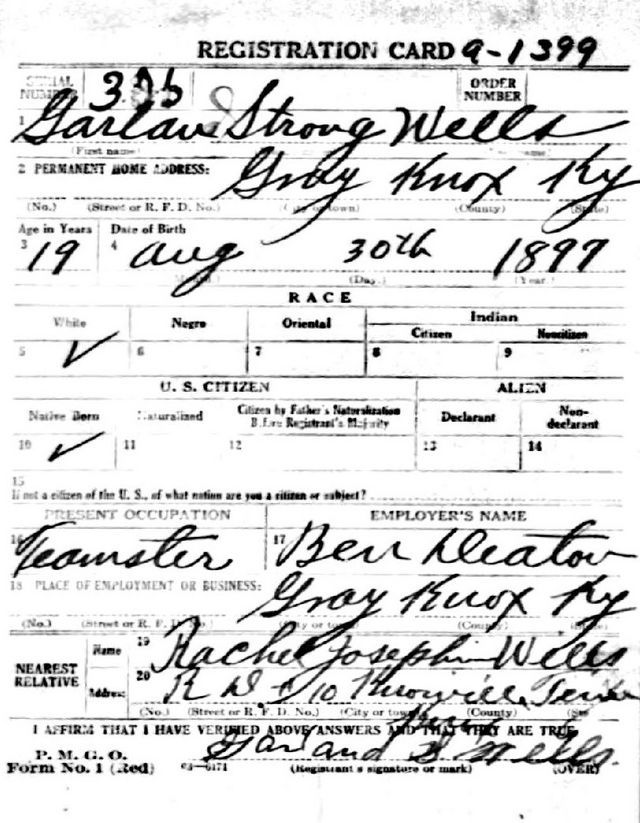 REGISTRATION CARD 9-1399
SERIAL NUMBER 326 ORDER NUMBER
1 Garland Strong Wells
(First name) name)
2 PERMANENT HOME ADDRESS: Gray Knox Ky
(No.) (Street or R. F. D. No.) (City or town) (County) (State)
Age in Years Date of Birth
3 19 4 Aug 30th 1899
(Month.) (Day.) (Year.)
RACE
White Negro Oriental Indian
Citizen Noncitizen
5 ✓ 6 7 8 9
U. S. CITIZEN ALIEN
Native Born Naturalized Citizen by Father's Naturalization Before Registrant's Majority Declarant Non-declarant
10 ✓ 11 12 13 14
15
If not a citizen of the U. S., of what nation are you a citizen or subject?
PRESENT OCCUPATION EMPLOYER'S NAME
16 Teamster 17 Ben Deaton
18 PLACE OF EMPLOYMENT OR BUSINESS: Gray Knox Ky
(No.) (Street or R. F. D. No.) (City or town) (County) (State)
NEAREST RELATIVE Name 19 Rachel Joseph Wells
Address 20 R D # 10 Knoxville Tenn
(No.) (Street or R. F. D. No.) (City or town) (County) (State)
I AFFIRM THAT I HAVE VERIFIED ABOVE ANSWERS AND THAT THEY ARE TRUE
P. M. G. O.
Form No. 1 (Red) 03—6171 Garland S. Wells
(Registrant's signature or mark) (OVER)